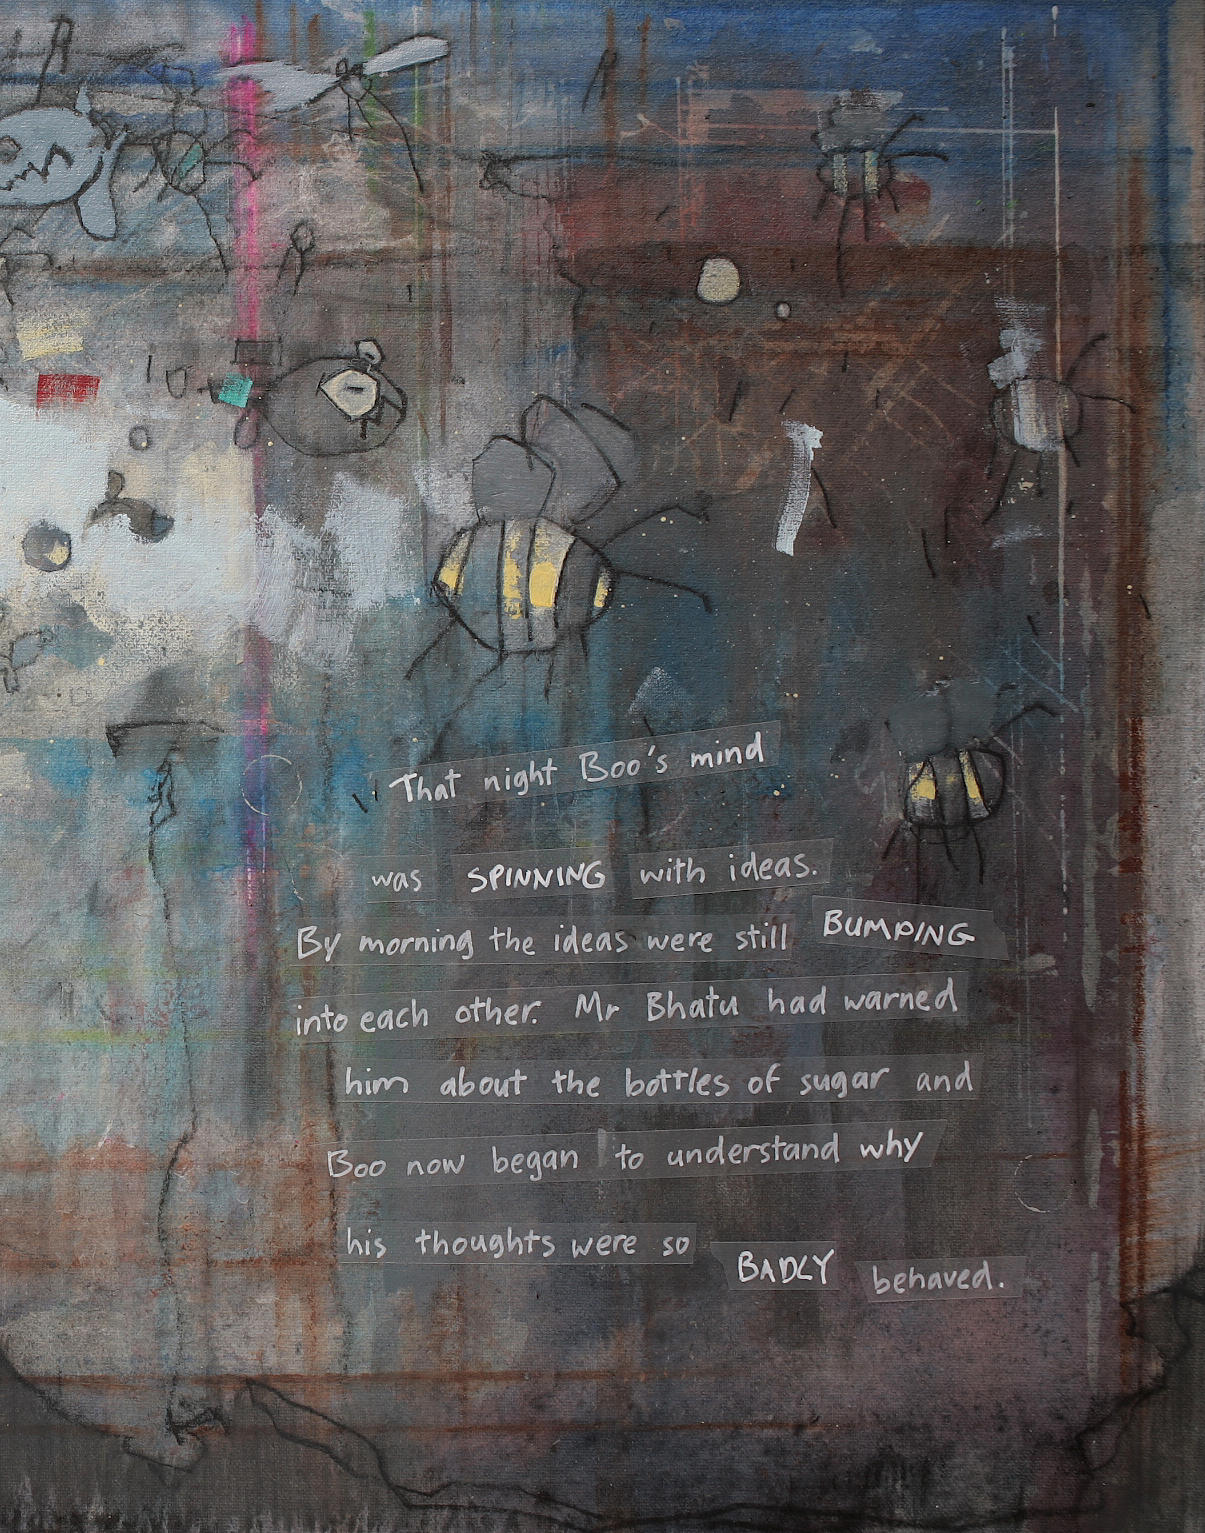 That night Boo's mind
was SPINNING with ideas.
By morning the ideas were still BUMPING
into each other. Mr Bhatu had warned
him about the bottles of sugar and
Boo now began to understand why
his thoughts were so BADLY behaved.